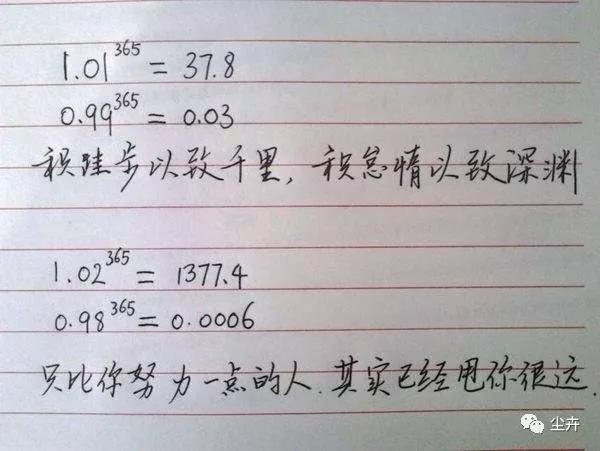 1.01^365 = 37.8
0.99^365 = 0.03
积跬步以致千里，积怠情以致深渊
1.02^365 = 1377.4
0.98^365 = 0.0006
只比你努力一点的人.其实已经甩你很远.
尘卉